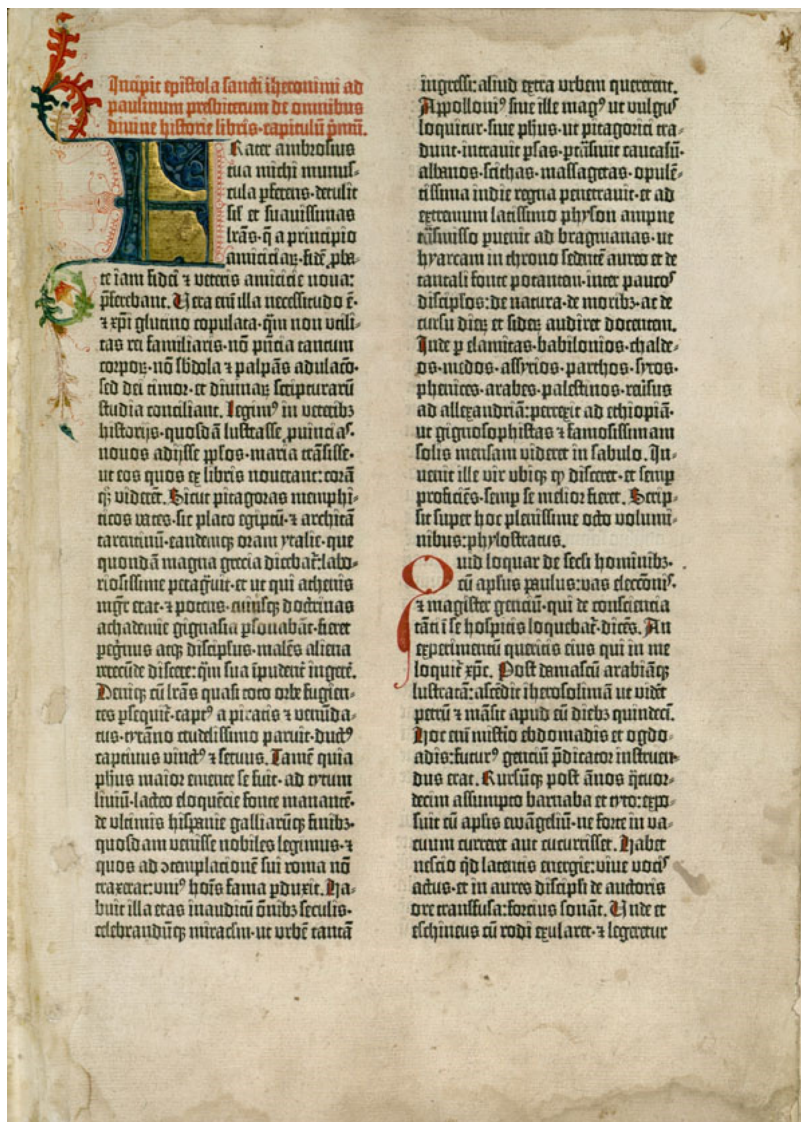 Incipit epistola sancti iheronimi ad
paulinum presbiterum de omnibus
divine historie libris·capitulū p̄mū.
Frater ambrosius
tua michi munus-
cula p̄ferens·detulit
sil' et suauissimas
lr̄as·q̄ a principio
amiciciaꝝ·fidē ꝓba-
te iam fidei ⁊ veteris amicicie noua:
p̄ferebant. Uera em̄ illa necessitudo ē·
⁊ xp̄i glutino copulata·qm̄ non utili-
tas rei familiaris·nō p̄ntia tantum
corporꝝ·nō sb̄dola ⁊ palpās adulaco·
sed dei timor·et diuinaꝝ scripturarū
studia conciliant. Legim⁹ in veteribꝫ
historijs·quosdā lustrasse ꝓuincias·
nouos adijsse pp̄los·maria trāsisse·
ut eos quos ex libris nouerant: corā
qꝫ viderēt. Sicut pitagoras memphi-
ticos vates·sic plato egiptū·⁊ architā
tarentinū·eandemqꝫ oram ytalie·que
quondā magna grecia dicebat̄: labo-
riosissime peragr̄uit·et ut qui athenis
mgr̄ erat·⁊ potens·cuiusqꝫ doctrinas
achademie gignasia ꝑsonabāt·fieret
peg̓nus atqꝫ discipl̄us·malēs aliena
verecūde discere: qm̄ sua īpudent̓ ingerē.
Deniqꝫ cū lr̄as quasi toto orbe fugien-
tes ꝑsequit̄·capt⁹ a piratis ⁊ venūda-
tus·tyrāno crudelissimo paruit·duct⁹
captiuus vinct⁹ ⁊ seruus. Tamē quia
ph̄us maior emente se fuit·ad tytum
liuiū·lacteo eloquēcie fonte manantē·
de ultimis hispanie galliarūqꝫ finibꝫ·
quosdam venisse nobiles legimus·⁊
quos ad ɔtemplacionē sui roma nō
traxerat: uni⁹ hoīs fama ꝑduxit. Ha-
buit illa etas inauditū ōnibꝫ seculis·
celebrandūqꝫ miraclm̄·ut urbē tantā
ingressi: aliud extra urbem quererent.
Appolloni⁹ siue ille mag⁹ ut vulgus
loquitur·siue ph̄us·ut pitagorici tra-
dunt·intrauit ꝑsas·ꝑtrāsiuit caucasū·
albanos·scithas·massagetas·opulē-
tissima indie regna penetrauit·et ad
extremum latissimo physon ampne
trāsmisso ꝑuenit ad bragmanas·ut
hyarcam in throno sedentē aureo et de
tantali fonte potantem·inter paucos
discipl̄os: de natura·de moribꝫ·ac de
cursu dieꝝ et sideꝝ audiret docentem.
Inde ꝑ elamitas·babilonios·chalde-
os·medos·assyrios·parthos·syros·
phenices·arabes·palestinos·reūsus
ad allexandriā: perrexit ad ethiopiā·
ut gignosophistas ⁊ famosissimam
solis mensam videret in sabulo. In-
uenit ille vir ubiqꝫ qꝫ disceret·et semꝑ
proficiēs·semꝑ se melior fieret. Scrip-
sit super hoc plenissime octo volumi-
nibus: phylostratus.
Quid loquar de secli hominibꝫ·
cū apl̄us paulus: vas eleccōnis·
⁊ magister gentiū·qui de consciencia
tāti ī se hospitis loquebat̄·dicēs. An
experimentū queritis eius qui in me
loquit̄ xp̄c. Post damascū arabiāqꝫ
lustratā: ascēdit iherosolimā ut vidēt
petrū ⁊ māsit apud eū diebꝫ quindecī.
Hoc em̄ misterio ebdomadis et ogdo-
adis: futur⁹ gentiū p̄dicator instruen-
dus erat. Rursūqꝫ post ānos q̄tuor-
decim assumpto barnaba et tyto: expo-
suit cū apl̄is ewāgeliū·ne forte in va-
cuum curreret aut cucurrisset. Habet
nescio qd̄ latentis energie: viue vocis
actus·et in aures discipl̄i de auctoris
ore transfusa: forcius sonāt. Unde et
eschineus cū rodi exularet·⁊ legeretur